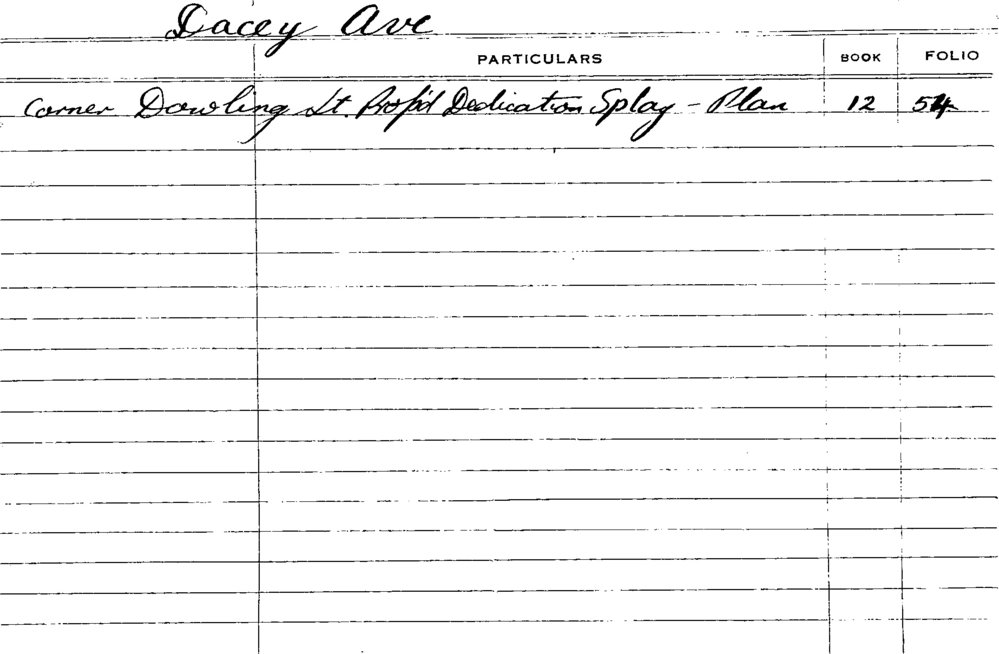 Dacey Ave
PARTICULARS BOOK FOLIO
Corner Dowling St. Prop'd Dedication Splay - Plan 12 54